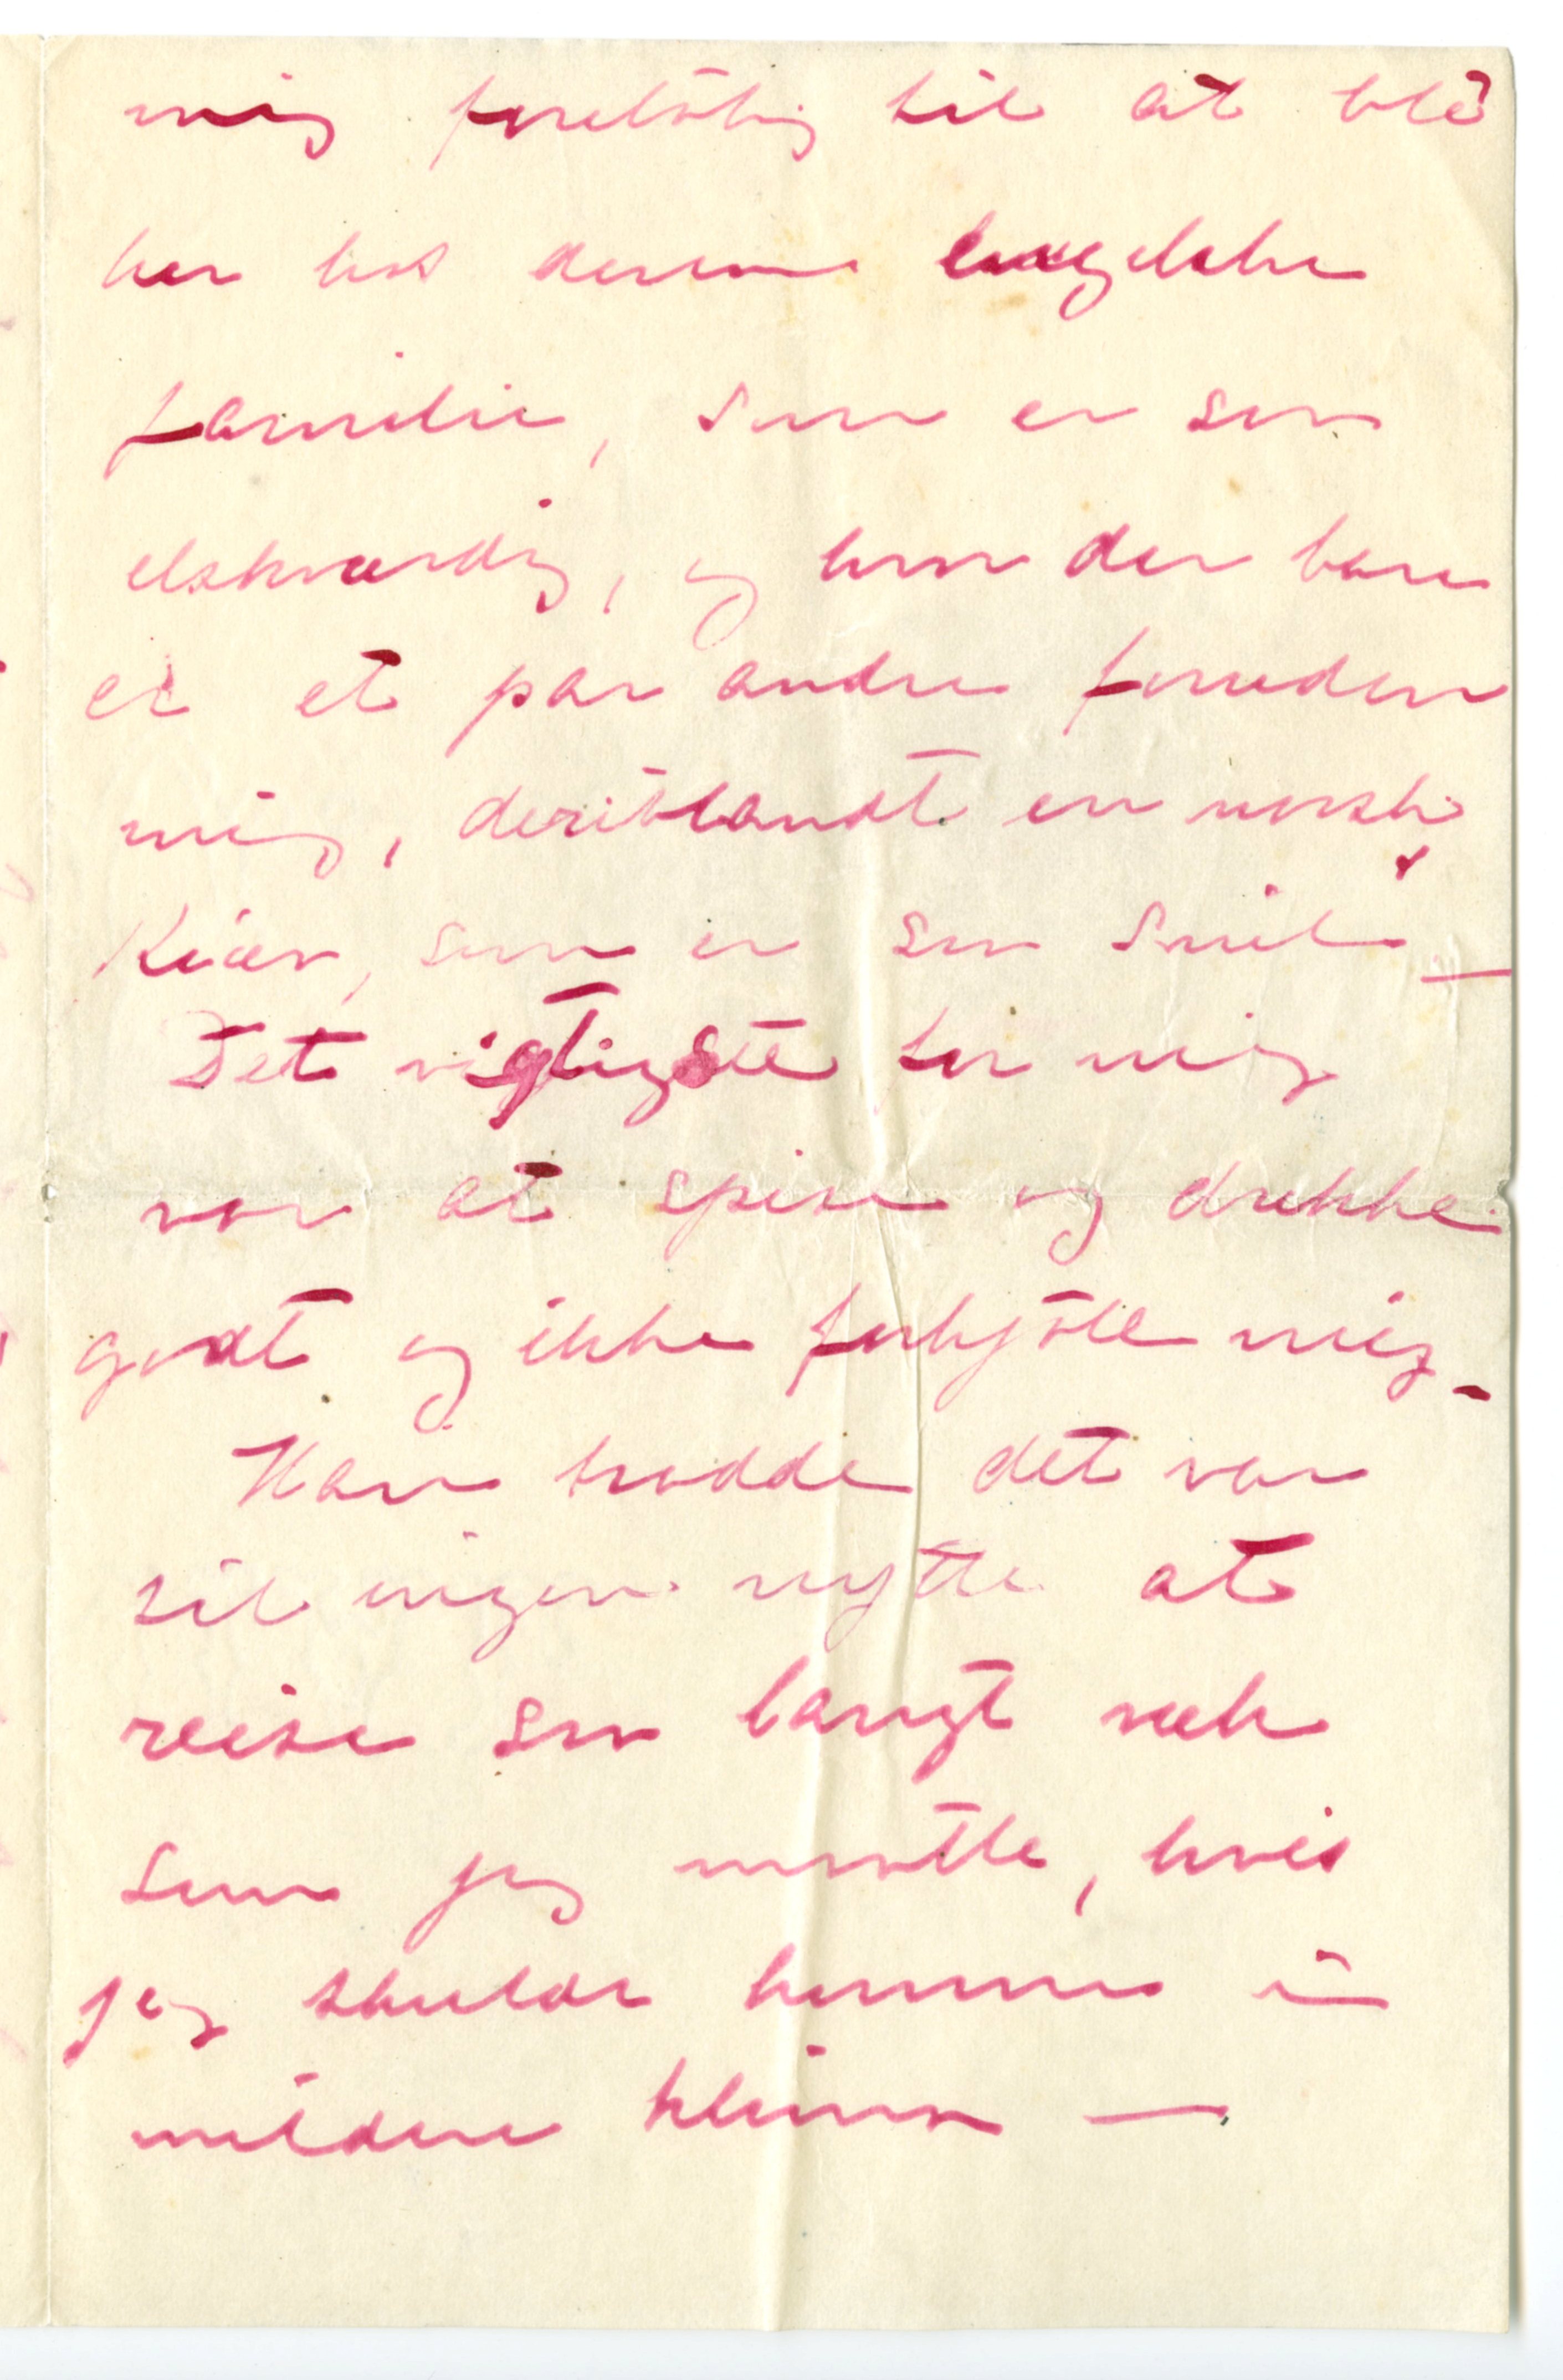 mig foreløbig til at bli
her hos denne engelske
familie, som er son
elskværdig, og hvor der bare
er et par andre foruden
mig, deriblandt en norsk
Kiær, som er son snil –
Det vigtigste for mig
var at spise og drikke
godt og ikke forkjøle mig –
Han trodde det var
til ingen nytte at
reise son langt væk
som jeg maatte, hvis
jeg skulde komme i
mildere klima —